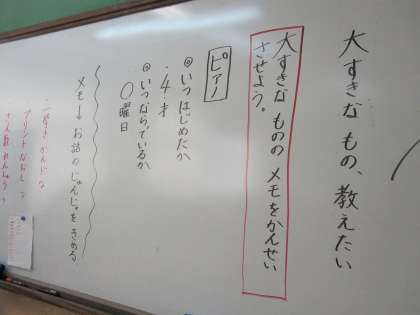 大すきなもの、教えたい
大すきなもののメモをかんせい
させよう。
ピアノ
◎いつはじめたか
・4才
◎いつならっているか
〇曜日
メモ→お話のじゅんじょをきめる